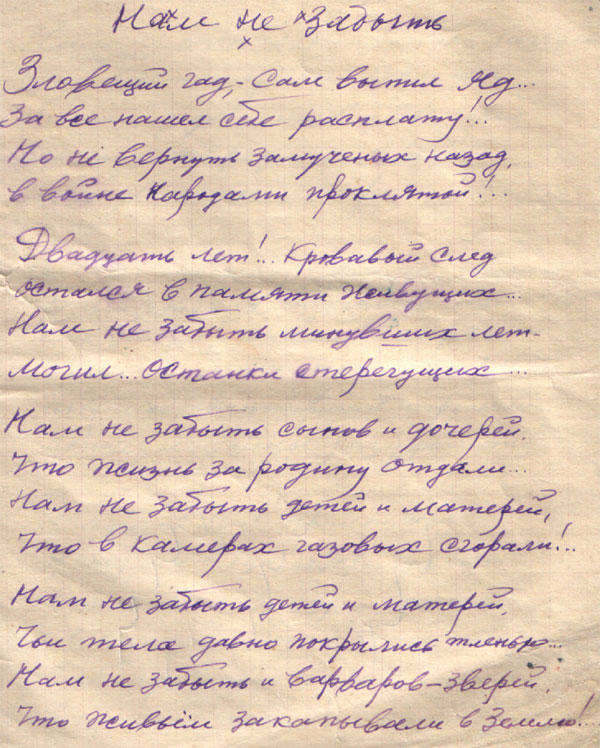 Нам не Забыть
Зловещий гад, - Сам выпил яд...
За все нашел себе расплату!..
Но не вернуть замученых назад,
в войне народами проклятой!..
Двадцать лет!.. Кровавый след
остался в памяти живущих...
Нам не забыть минувших лет-
Могил... останки стерегущих...
Нам не забыть сынов и дочерей,
Что жизнь за родину отдали...
Нам не забыть детей и матерей,
Что в камерах газовых сгорали!..
Нам не забыть детей и матерей,
Чьи тела давно покрылись тленью...
Нам не забыть и варваров-зверей,
Что живьём закапывали в Землю!..